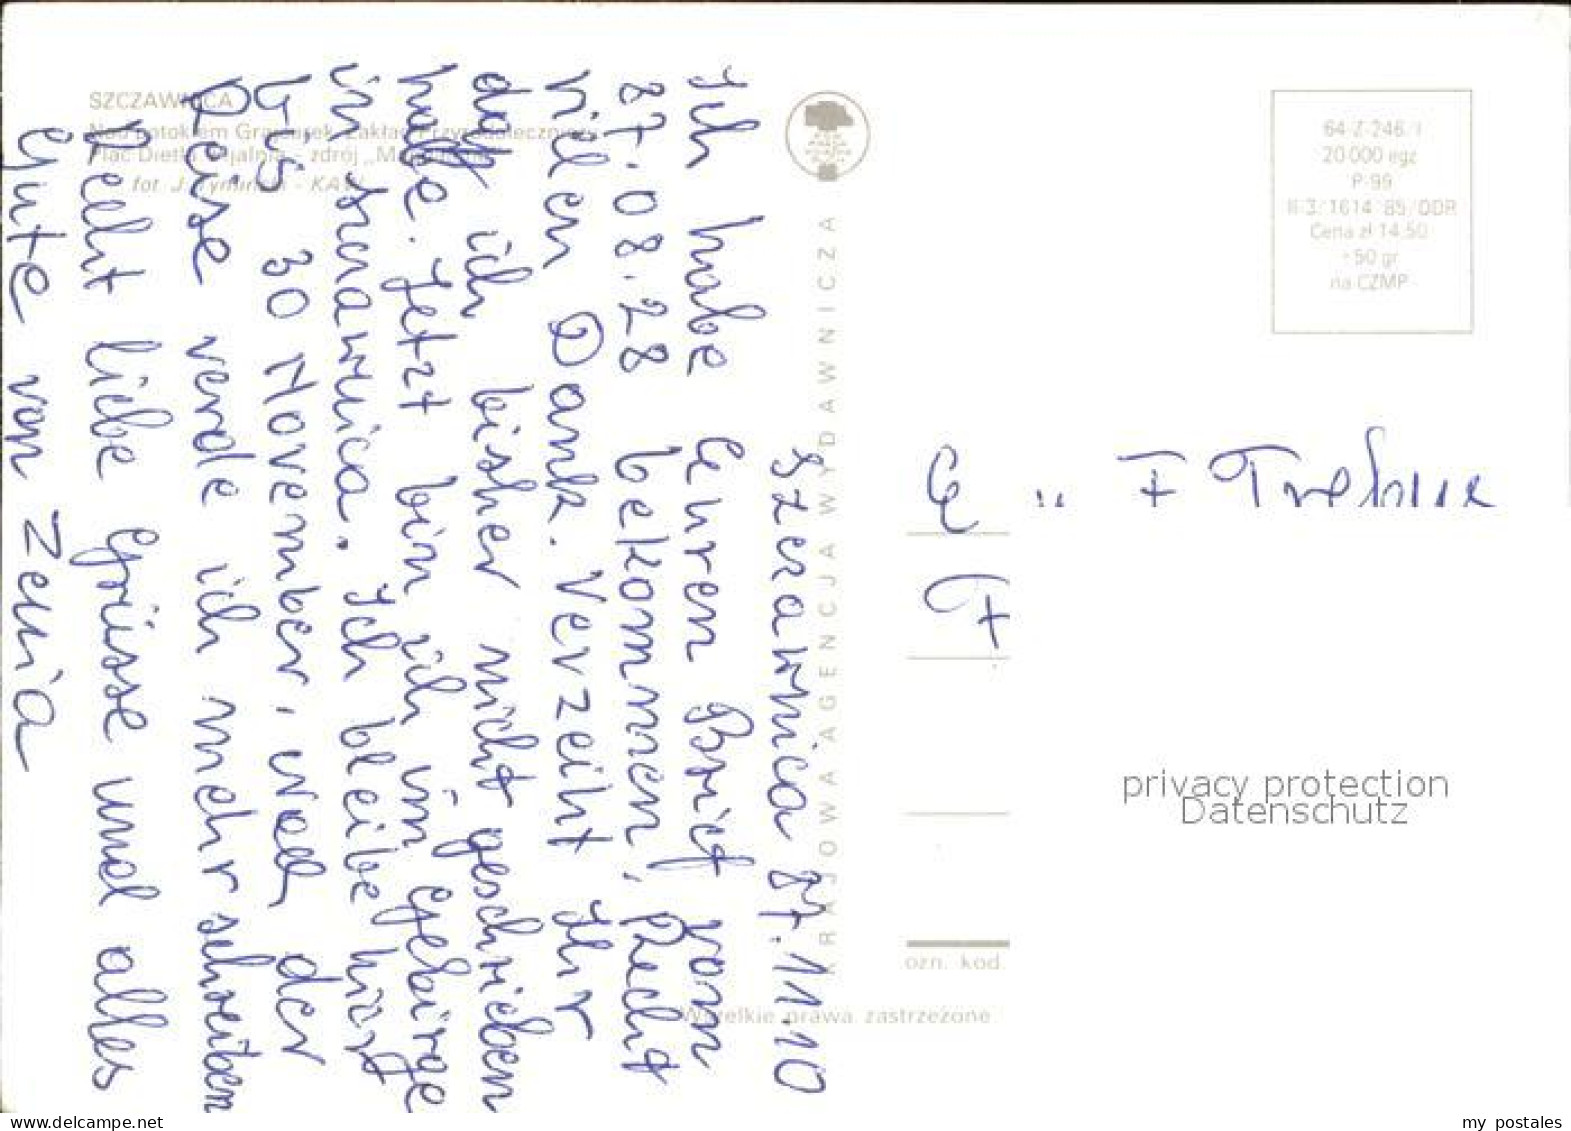 SZCZAWNICA
Nad potokiem Grajcarek. Zakład Przyrodoleczniczy.
Plac Dietla. Pijalnia - zdrój „Magdalena"
fot. J. Tymiński - KAW
KRAJOWA AGENCJA WYDAWNICZA
64-Z-246/I
20 000 egz
P-99
II-3/1614/85/DDR
Cena zł 14,50
+50 gr
na CZMP
Szczawnica 87.11.10
Ich habe Ehren Brief vom
87.08.28 bekommen, Recht
vielen Dank. Verzeiht Ihr
daß ich bisher nicht geschrieben
habe. Jetzt bin ich im Gebirge
in Szczawnica. Ich bleibe hier
bis 30 November, nach der
Reise verde ich mehr schreiben
Recht liebe Grüsse und alles
Gute von Zenia
ozn. kod.
Wszelkie prawa zastrzeżone
privacy protection
Datenschutz
www.delcampe.net
my_postales